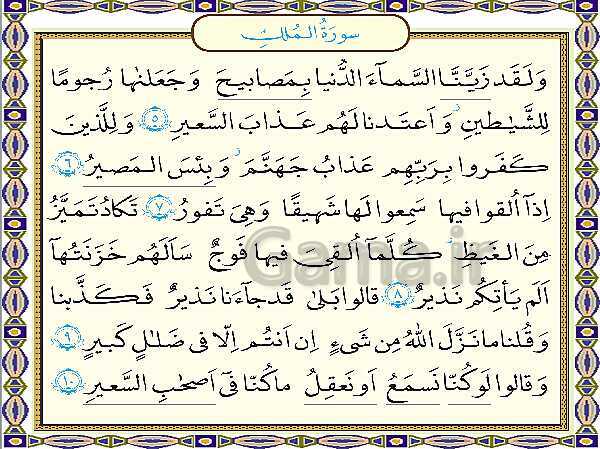 سورة الملك
وَلَقَد زَيَّنَّا السَّمآءَ الدُّنيا بِمَصابيحَ وَجَعَلنٰها رُجومًا
لِلشَّيٰطينِ ۖ وَاَعتَدنا لَهُم عَذابَ السَّعيرِ ﴿٥﴾ وَلِلَّذينَ
كَفَروا بِرَبِّهِم عَذابُ جَهَنَّمَ ۖ وَبِئسَ المَصيرُ ﴿٦﴾
اِذآ اُلقوا فيها سَمِعوا لَها شَهيقًا وَهِىَ تَفورُ ﴿٧﴾ تَكادُ تَمَيَّزُ
مِنَ الغَيظِ ۖ كُلَّمآ اُلقِىَ فيها فَوجٌ سَاَلَهُم خَزَنَتُهآ
اَلَم يَأتِكُم نَذيرٌ ﴿٨﴾ قالوا بَلىٰ قَد جآءَنا نَذيرٌ فَكَذَّبنا
وَقُلنا ما نَزَّلَ اللّٰهُ مِن شَىءٍ اِن اَنتُم اِلّا فى ضَلٰلٍ كَبيرٍ ﴿٩﴾
وَقالوا لَو كُنّا نَسمَعُ اَو نَعقِلُ ما كُنّا فىٓ اَصحٰبِ السَّعيرِ ﴿١٠﴾
Gama.ir